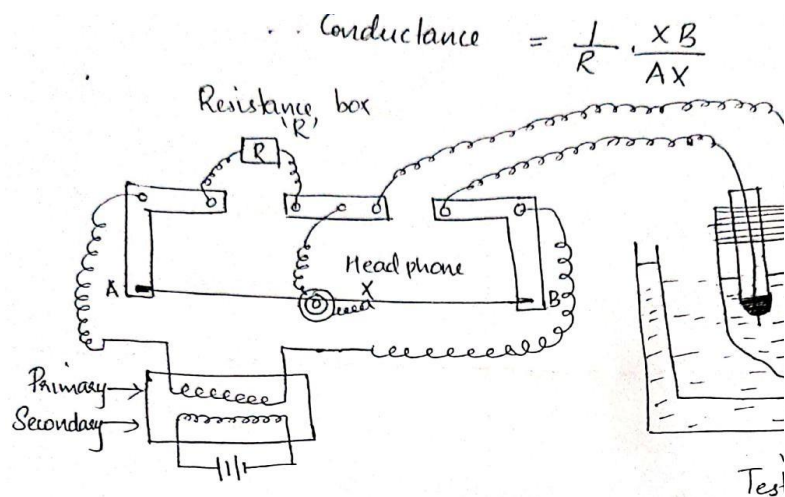 ∴ Conductance = 1/R · XB/AX
Resistance box
'R'
R
Headphone
A
X
B
Primary
Secondary
Test